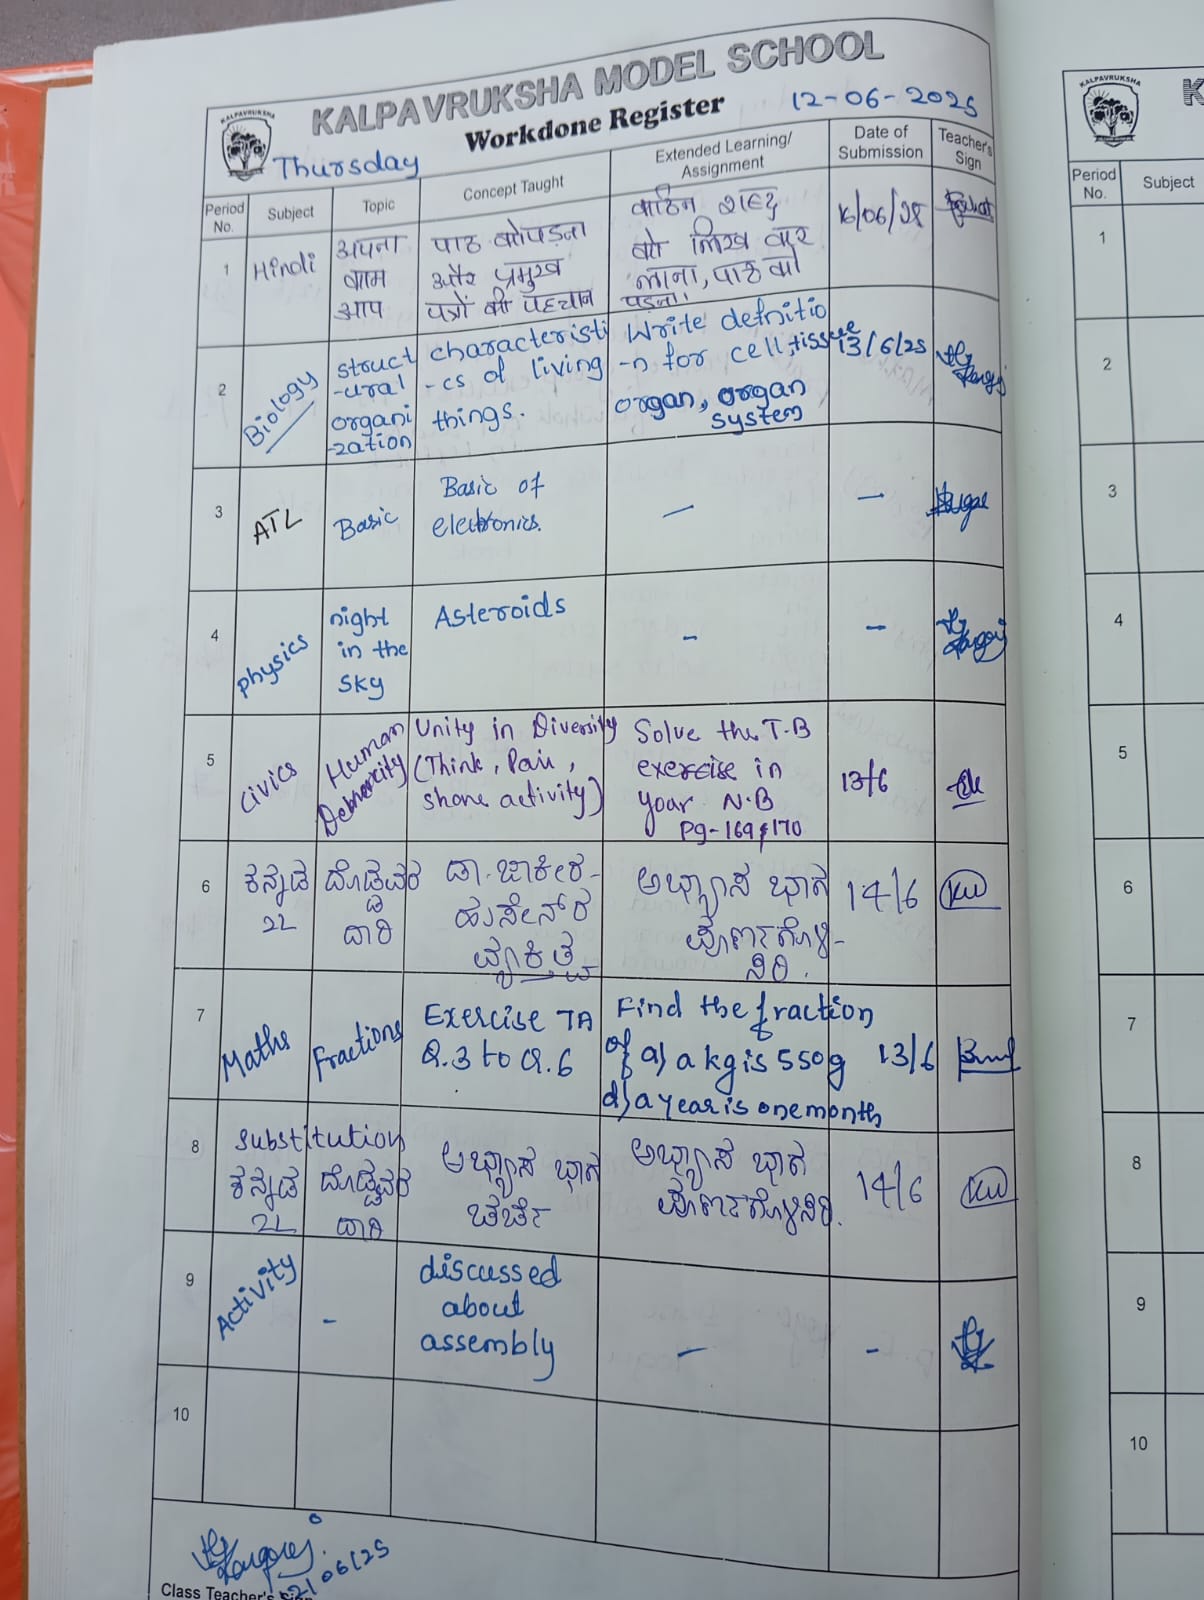 KALPAVRUKSHA MODEL SCHOOL
Workdone Register
12-06-2025
KALPAVRUKSHA
Thursday
Period No.
Subject
Topic
Concept Taught
Extended Learning/ Assignment
Date of Submission
Teacher's Sign
1
Hindi
अपना
काम
आप
पाठ को पड़ना
और प्रमुख
पत्रों की पहचान
कठिन शब्द
को लिख कर
लाना, पाठ को
पड़ना।
16/06/25
2
Biology
struct
-ural
organi
-zation
characteristi
-cs of living
things.
Write definitio
-n for cell, tissue
organ, organ
system
13/6/25
3
ATL
Basic
Basic of
electronics.
—
—
4
physics
night
in the
sky
Asteroids
-
-
5
Civics
Human
Unity in Diversity
(Think, Pair,
share activity)
Solve the T.B
exercise in
your N.B
pg-169 & 170
13/6
6
ಕನ್ನಡ
2L
ದೊಡ್ಡವರ
ದಾರಿ
ಡಾ. ಜಾಕೀರ-
ಹುಸೇನ್‌ರ
ವ್ಯಕ್ತಿತ್ವ
ಅಭ್ಯಾಸ ಭಾಗ
ಪೂರ್ಣಗೊಳಿ-
ಸಿರಿ.
14/6
KW
7
Maths
Fractions
Exercise 7A
Q.3 to Q.6
Find the fraction
of a) a kg is 550g
d) a year is one month
13/6
8
Substitution
ಕನ್ನಡ
2L
ದೊಡ್ಡವರ
ದಾರಿ
ಅಭ್ಯಾಸ ಭಾಗ
ಚರ್ಚೆ
ಅಭ್ಯಾಸ ಭಾಗ
ಪೂರ್ಣಗೊಳಿಸಿರಿ.
14/6
KW
9
Activity
-
discussed
about
assembly
—
-
10
Class Teacher's
KALPAVRUKSHA
K
Period No.
Subject
1
2
3
4
5
6
7
8
9
10